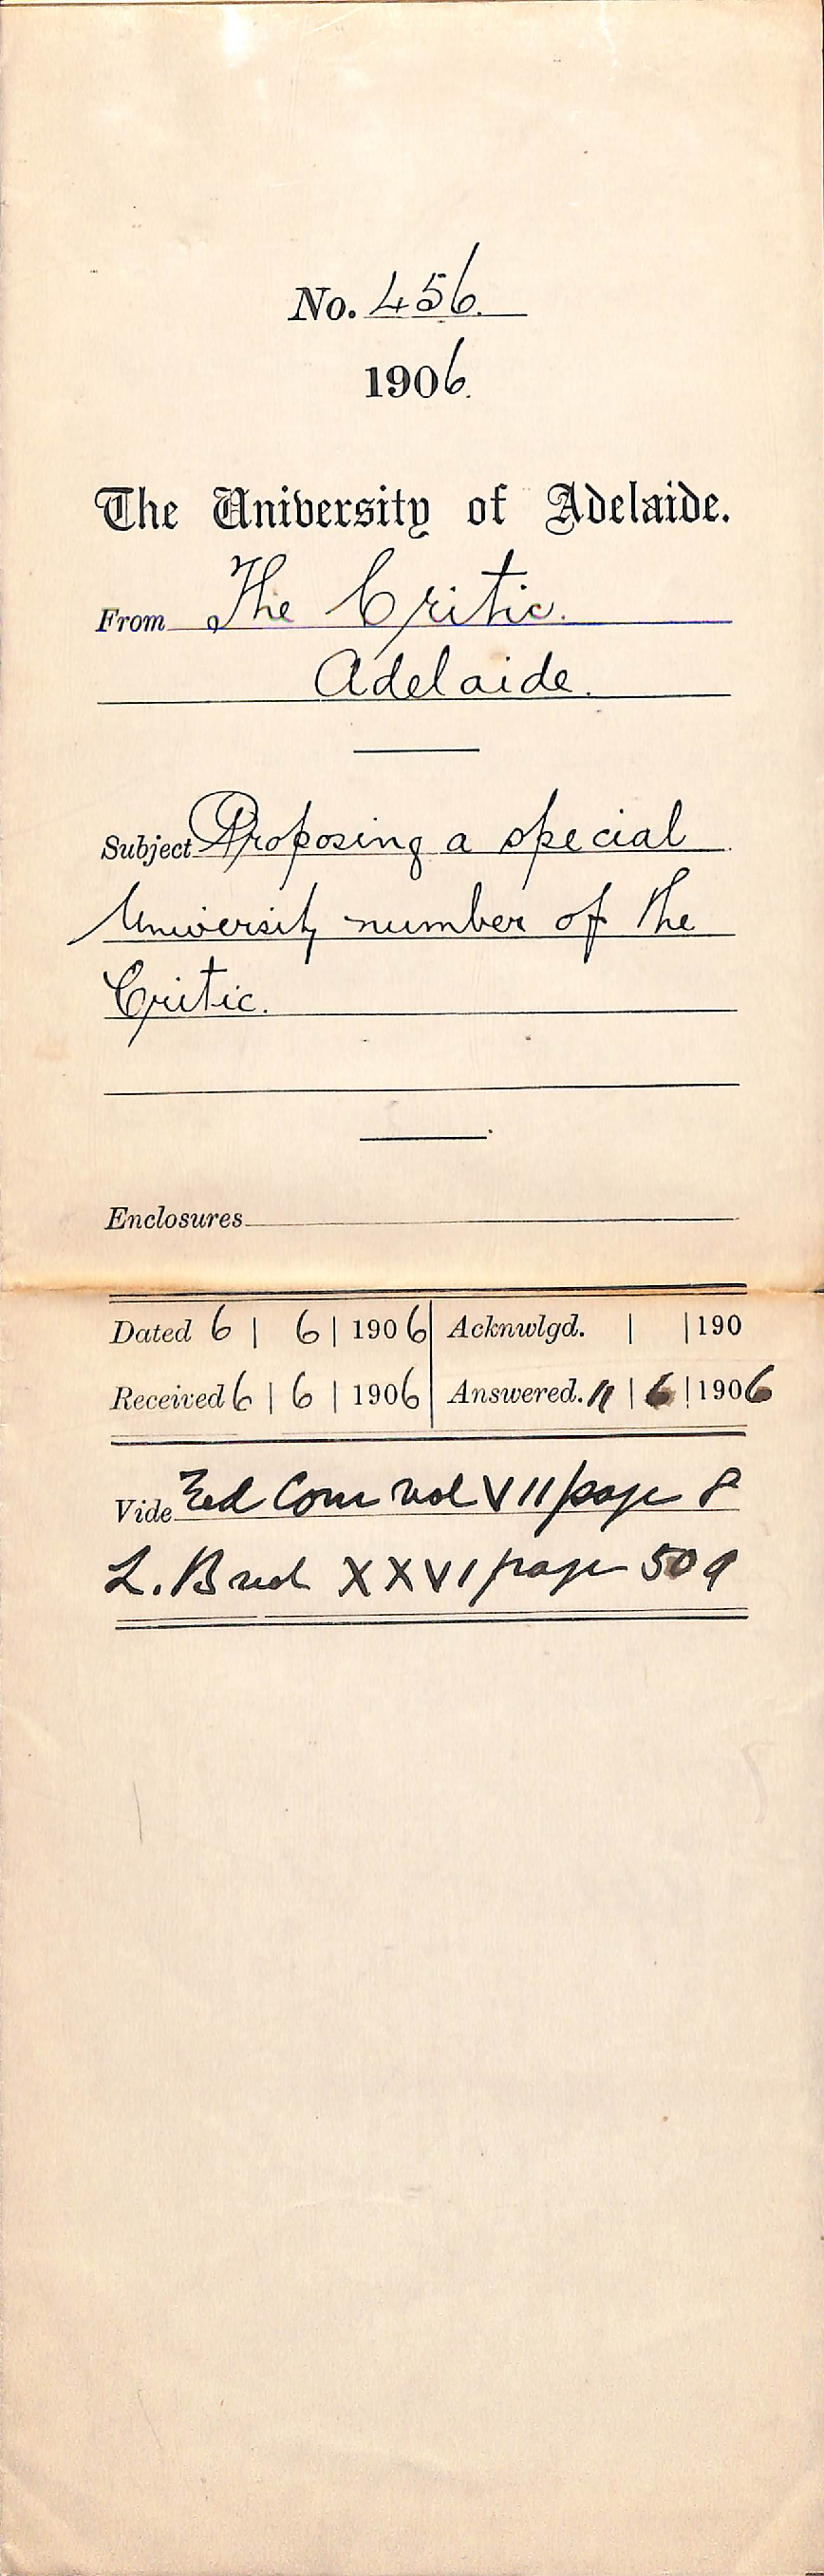 No. 456.
1906.
The University of Adelaide.
From The Critic.
Adelaide.
Subject Proposing a special
University number of the
Critic.
Enclosures
Dated 6 | 6 | 1906 Acknwlgd. | | 190
Received 6 | 6 | 1906 Answered. 11 | 6 | 1906
Vide Ed Com vol VII page 8
L. B vol XXVI page 509